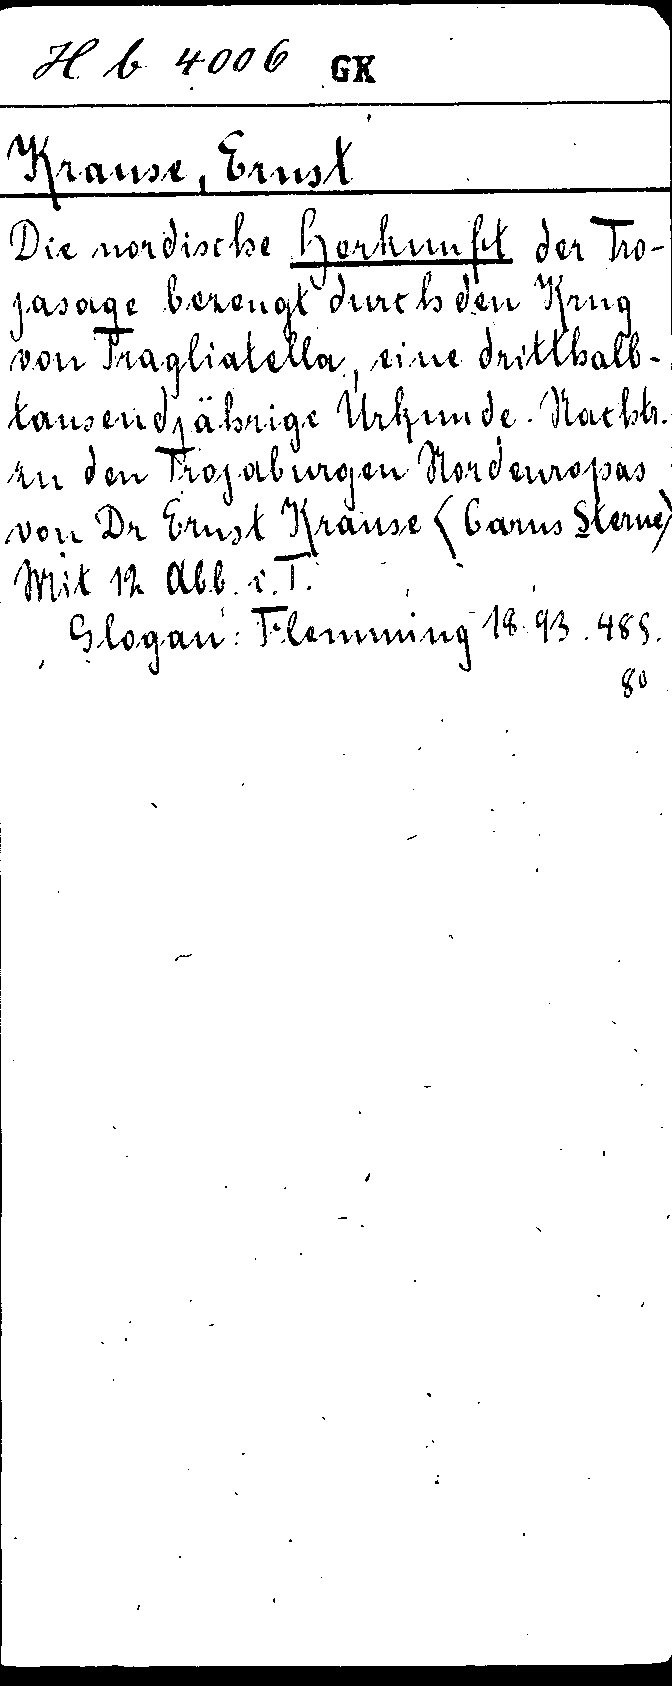 H b 4006 GK
Krause, Ernst
Die nordische Herkunft der Tro-
jasage bezeugt durch den Krug
von Tragliatella, eine dritthalb-
tausendjährige Urkunde. Nachtr.
zu den Trojaburgen Nordeuropas
von Dr Ernst Krause (Carus Sterne)
Mit 12 Abb. i. T.
Glogau: Flemming 1893. 48 S.
8°